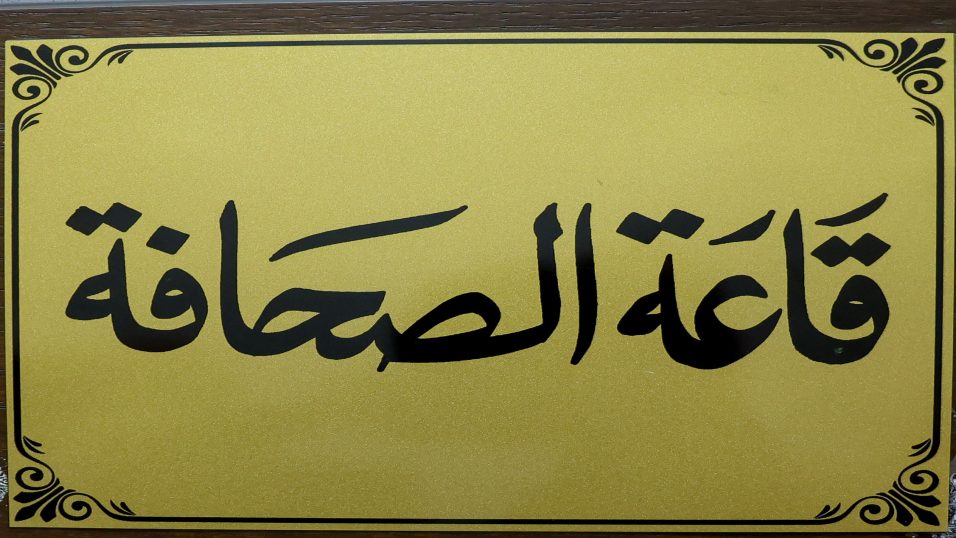 قَاعَة الصحَافة